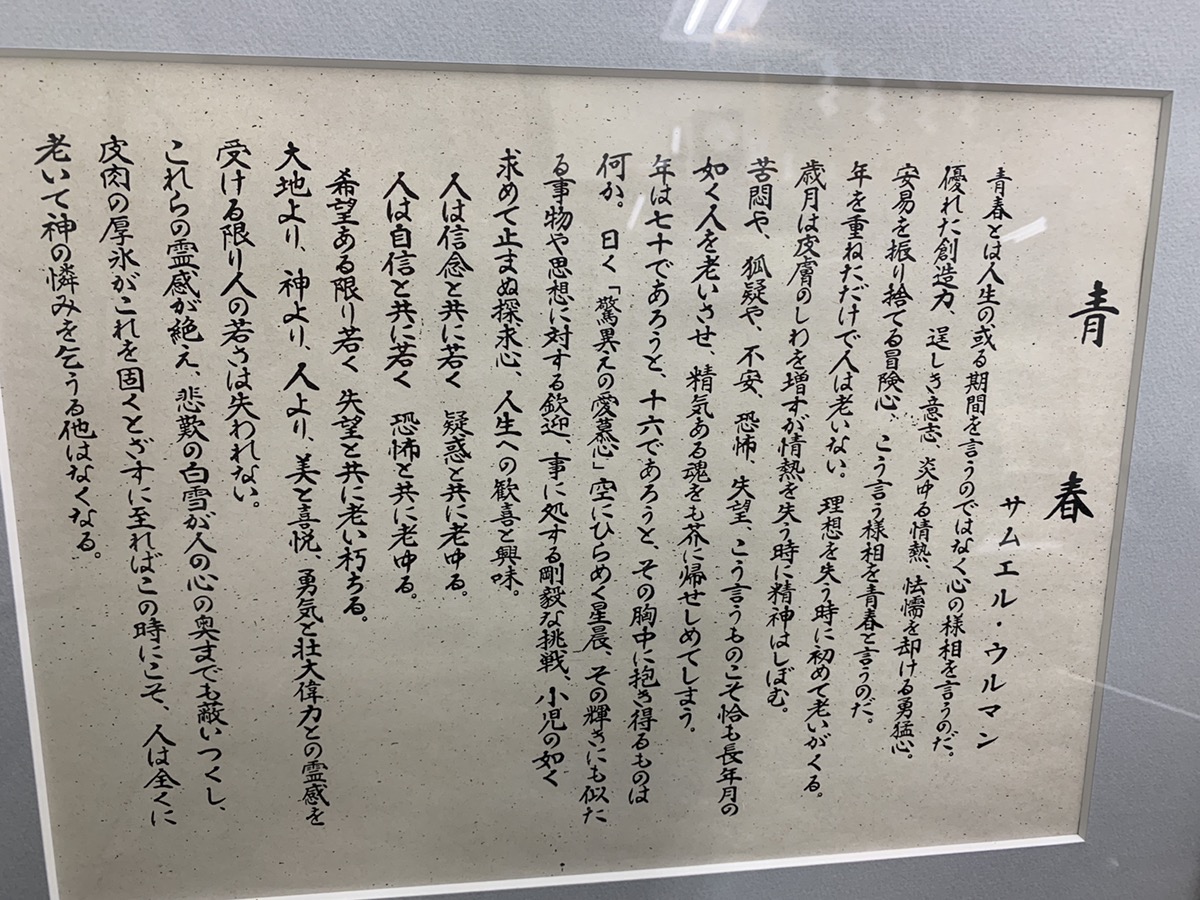 青春
サムエル・ウルマン
青春とは人生の或る期間を言うのではなく心の様相を言うのだ。
優れた創造力、逞しき意志、炎ゆる情熱、怯懦を却ける勇猛心。
安易を振り捨てる冒険心、こう言う様相を青春と言うのだ。
年を重ねただけで人は老いない。理想を失う時に初めて老いがくる。
歳月は皮膚のしわを増すが情熱を失う時に精神はしぼむ。
苦悶や、狐疑や、不安、恐怖、失望、こう言うものこそ恰も長年月の
如く人を老いさせ、精気ある魂をも芥に帰せしめてしまう。
年は七十であろうと、十六であろうと、その胸中に抱き得るものは
何か。曰く「驚異えの愛慕心」空にひらめく星晨、その輝きにも似た
る事物や思想に対する欽迎、事に処する剛毅な挑戦、小児の如く
求めて止まぬ探求心、人生への歓喜と興味。
人は信念と共に若く 疑惑と共に老ゆる。
人は自信と共に若く 恐怖と共に老ゆる。
希望ある限り若く 失望と共に老い朽ちる。
大地より、神より、人より、美と喜悦、勇気と壮大偉力との霊感を
受ける限り人の若さは失われない。
これらの霊感が絶え、悲歎の白雪が人の心の奥までも蔽いつくし、
皮肉の厚氷がこれを固くとざすに至ればこの時にこそ、人は全くに
老いて神の憐みを乞うる他はなくなる。